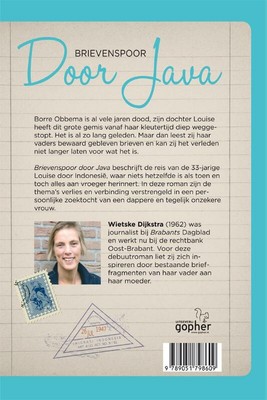 BRIEVENSPOOR
Door Java
Borre Obbema is al vele jaren dood, zijn dochter Louise
heeft dit grote gemis vanaf haar kleutertijd diep wegge-
stopt. Het is al zo lang geleden. Maar dan leest zij haar
vaders bewaard gebleven brieven en kan zij het verleden
niet langer laten voor wat het is.
Brievenspoor door Java beschrijft de reis van de 33-jarige
Louise door Indonesië, waar niets hetzelfde is als toen en
toch alles aan vroeger herinnert. In deze roman zijn de
thema's verlies en verbinding verstrengeld in een per-
soonlijke zoektocht van een dappere en tegelijk onzekere
vrouw.
Wietske Dijkstra (1962) was
journalist bij Brabants Dagblad
en werkt nu bij de rechtbank
Oost-Brabant. Voor deze
debuutroman liet zij zich in-
spireren door bestaande brief-
fragmenten van haar vader aan
haar moeder.
UITGEVERIJ
gopher
9 789051 798609